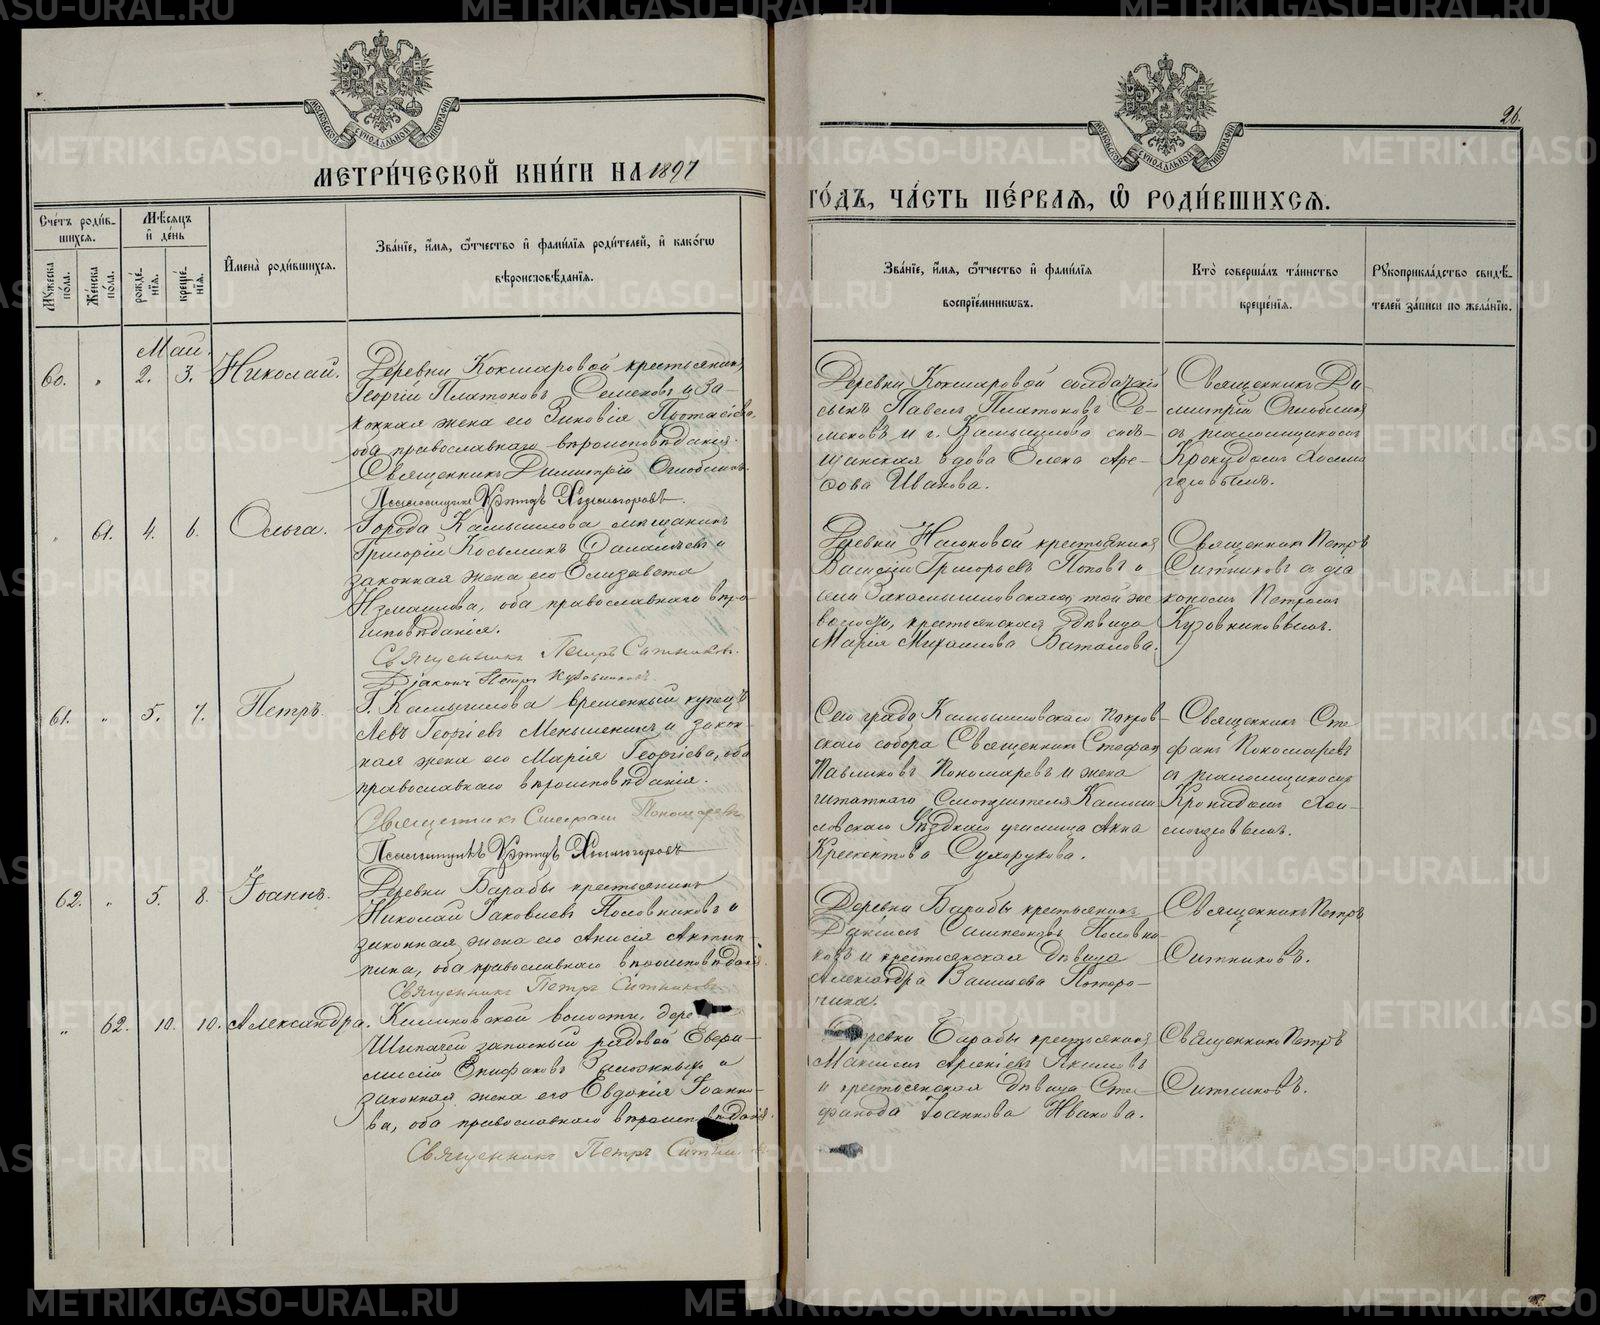 26.
МОСКОВСКОЙ СѴНОДАЛЬНОЙ ТИПОГРАФІИ
МОСКОВСКОЙ СѴНОДАЛЬНОЙ ТИПОГРАФІИ
МЕТРИ́ЧЕСКОЙ КНИ́ГИ НА 1897
ГО́ДЪ, ЧА́СТЬ ПЕ́РВАѦ, Ѡ РОДИ́ВШИХСѦ.
Сче́тъ роди́в-
шихсѧ.
Мѣ́сѧцъ
и де́нь
Мꙋ́жеска по́ла.
Же́нска по́ла.
рожде́-
нїѧ.
креще́-
нїѧ.
Имена̀ роди́вшихсѧ.
Зва́нїе, и́мѧ, ѻ҆́тчество и фами́лїѧ роди́телей, и како́гѡ
вѣроисповѣ́данїѧ.
Зва́нїе, и́мѧ, ѻ҆́тчество и фами́лїѧ
воспрїе́мникѡвъ.
Кто̀ соверша́лъ та́инство
креще́нїѧ.
Рꙋкоприкла́дство свидѣ́-
телей за́писи по жела́нїю.
Май.
60. " 2. 3. Николай.
Деревни Кокшаровой крестьянинъ
Георгій Платоновъ Семеновъ и за-
конная жена его Зиновія Протасіева
оба православнаго вѣроисповѣданія.
Священникъ Димитрій
Псаломщикъ Хлызлогоровъ
Деревни Кокшаровой солдатскій
сынъ Павелъ Платоновъ Се-
меновъ и г. Камышлова мѣ-
щанская вдова Елена Аре-
Иванова.
Священникъ Ди-
митрій
съ псаломщикомъ
" 61. 4. 6. Ольга.
Города Камышлова мѣщанинъ
Григорій Косьминъ и
законная жена его Елизавета
Измаилова, оба православнаго вѣро-
исповѣданія.
Священникъ Петръ Ситниковъ.
Діаконъ Петръ Кузовниковъ
Деревни крестьянинъ
Василій Григорьевъ Поповъ и
села Закамышловскаго, той же
волости, крестьянская дѣвица
Марія Михаилова Баталова.
Священникъ Петръ
Ситниковъ съ діа
кономъ Петромъ
Кузовниковымъ.
61. " 5. 7. Петръ.
Г. Камышлова временный купецъ
Левъ Георгіевъ Меньшенинъ и закон-
ная жена его Марія Георгіева, оба
православнаго вѣроисповѣданія.
Священникъ Стефанъ Пономаревъ
Сего града Камышловскаго Покров-
скаго собора Священникъ Стефанъ
Павлиновъ Пономаревъ и жена
штатнаго смотрителя Камыш
ловскаго Уѣзднаго училища Анна
Крескентова Сухорукова.
Священникъ Сте
фанъ Пономаревъ
съ псаломщикомъ
62. " 5. 8. Іоаннъ.
Деревни Барабы крестьянинъ
Николай Іаковлевъ Половниковъ и
законная жена его Анисія Антип-
пина, оба православнаго вѣроисповѣданія.
Священникъ Петръ Ситниковъ
Деревни Барабы крестьянинъ
Даніилъ Сампсоновъ Половни-
ковъ и крестьянская дѣвица
Александра Васильева Поторо-
чина.
Священникъ Петръ
Ситниковъ.
" 62. 10. 10. Александра.
волости, дере
Шипачей запасный рядовой Евфи-
мій Епифановъ и
законная жена его Евдокія Іоанно-
ва, оба православнаго вѣроисповѣданія.
Священникъ Петръ Ситни
Деревни Барабы крестьянинъ
Максимъ Арсеніевъ Якимовъ
и крестьянская дѣвица Сте-
фанида Іоаннова Иванова.
Священникъ Петръ
Ситниковъ.
METRIKI.GASO-URAL.RU